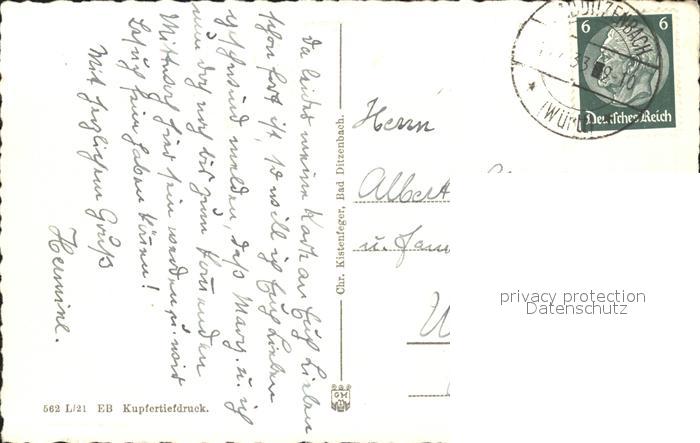 Da leider meine Karte an Euch Lieben
schon fort ist, so will ich Euch Lieben
geschwind melden, daß Mary u. ich
nun doch noch bis zum kommenden
Mittwoch hier sein werden u. wir
Besuch haben können!
Mit herzlichem Gruß
Hermine.
Chr. Kistenfeger, Bad Ditzenbach.
562 L/21 EB Kupfertiefdruck.
6 6
Deutsches Reich
DITZENBACH
(Württ
Herrn
Albert
u. Fam
privacy protection
Datenschutz